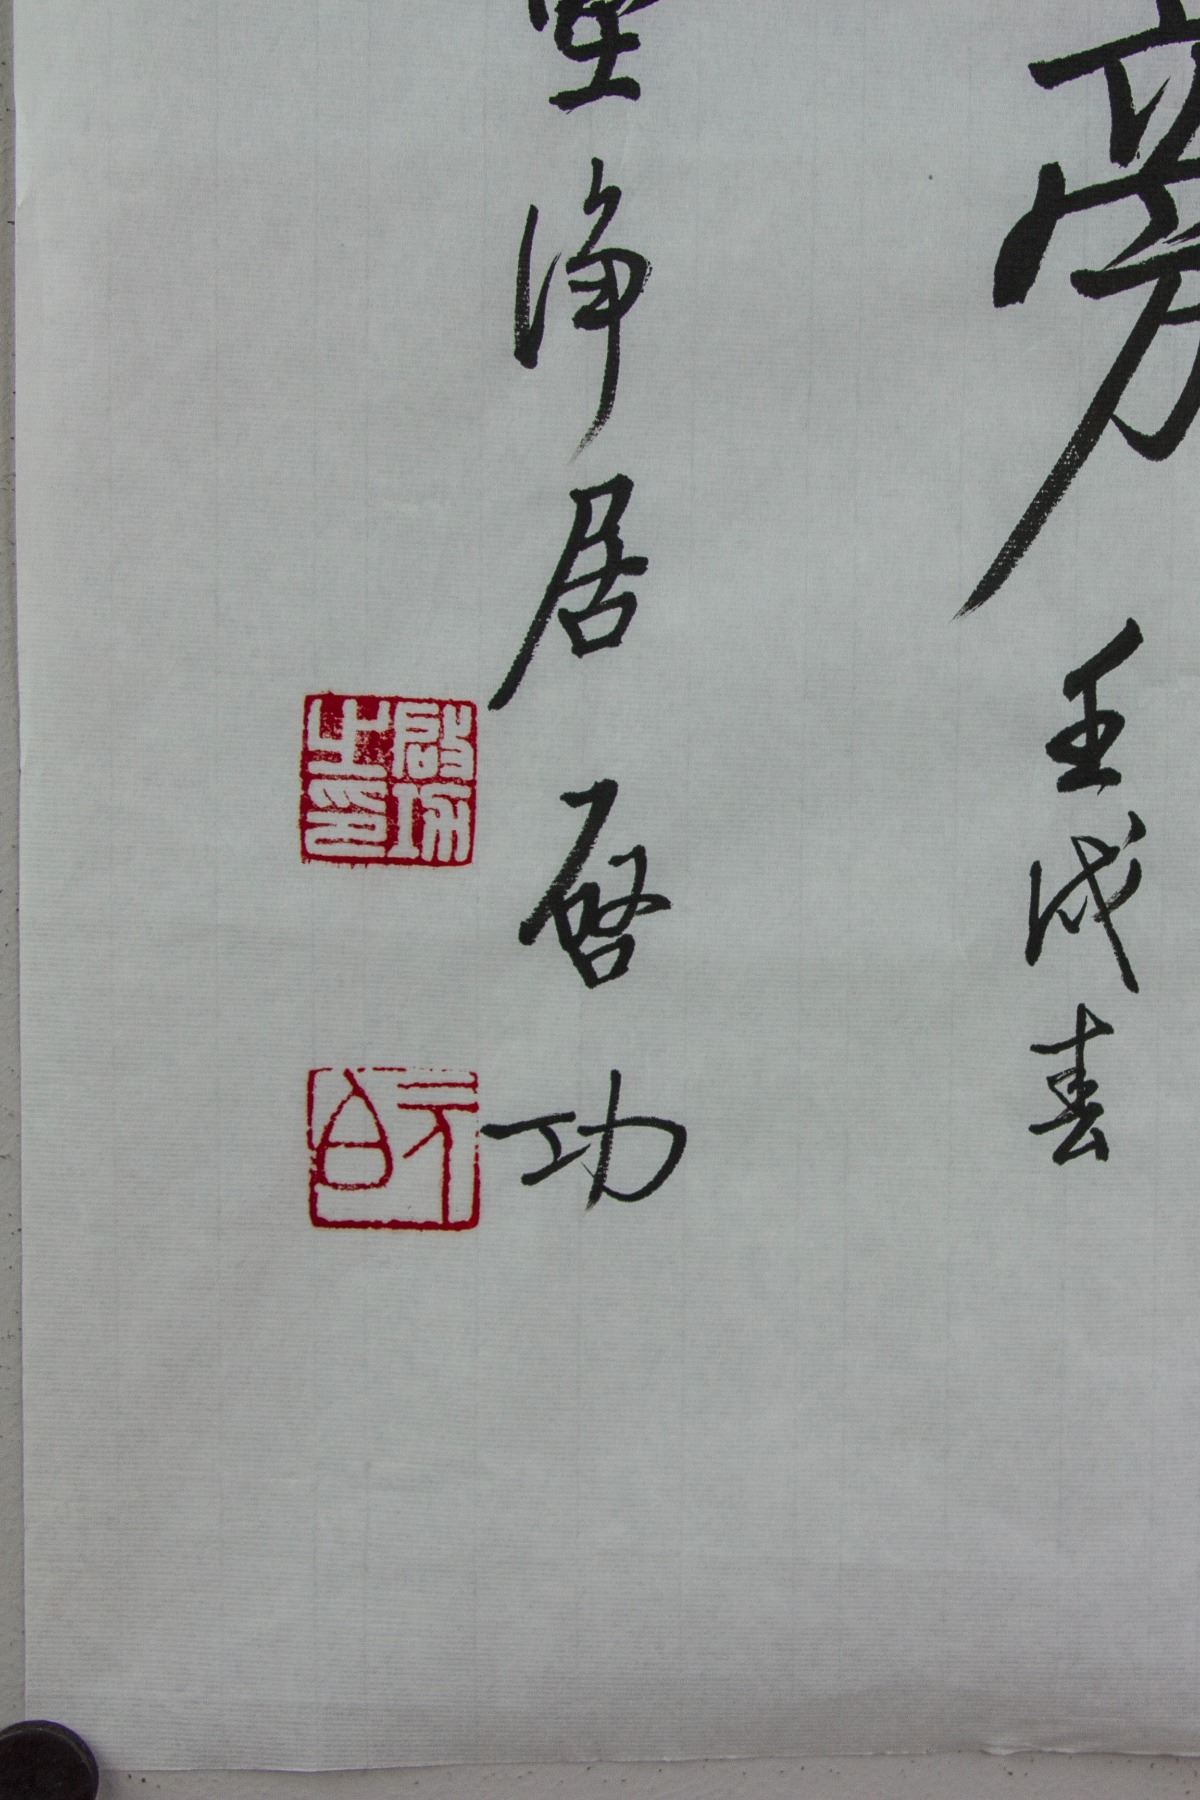 旁
壬戌春
堅淨居啓功
啟功之印
元白